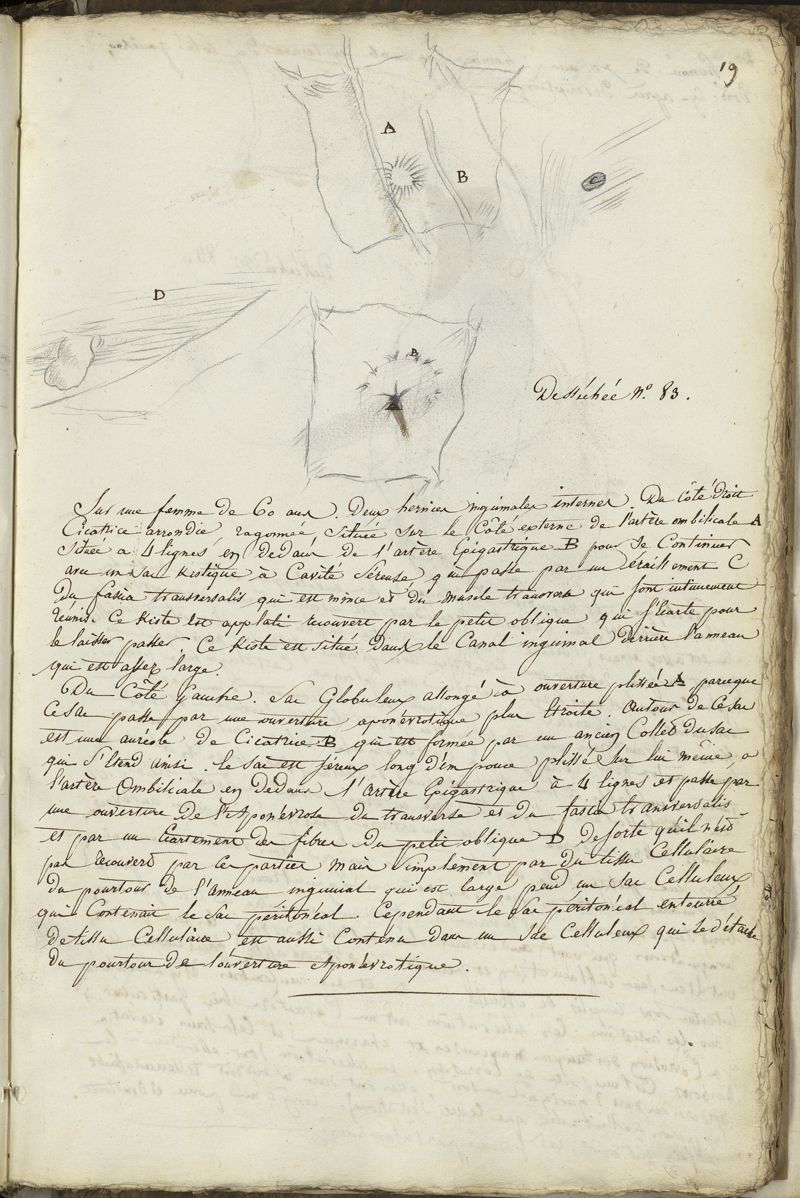 19
A
B
C
D
B
A
Desséchée N.º 83.
Sur une femme de 60 ans. Deux hernies inguinales internes Du côté droit
Cicatrice arrondie, rayonnée située sur le Côté externe de l'artère ombilicale A
Située a 4 lignes en dedans de l'artère Epigastrique B pour se Continuer
avec un Sac Kistique à Cavité Séreuse, qui passe par un éraillement C
Du fascia transversalis qui est mince et du muscle transverse qui sont intimement
reunis. Ce Kiste est applati recouvert par le petit oblique qui s'écarte pour
le laisser passer. Ce Kiste est situé dans le Canal inguinal derrière l'anneau
qui est assez large.
Du Côté gauche. Sac Globuleux allongé à ouverture plissée A parceque
Ce sac passe par une ouverture aponévrotique plus étroite. autour de Ce sac
est une auréole de Cicatrice B qui est formée par un ancien Collet du sac
qui s'étend ainsi. le sac est séreux long d'un pouce plissé sur lui même, a
l'artère Ombilicale en Dedans l'artère Epigastrique à 4 lignes et passe par
une ouverture de l'Aponévrose du transverse et du fascia transversalis
et par un Ecartement des fibres du petit oblique D de sorte qu'il n'est
pas recouvert par ces parties mais simplement par du tissu Cellulaire
du pourtour de l'anneau inguinal qui est large pend un Sac Celluleux
qui Contenait le Sac péritonéal. Cependant le Sac péritonéal entouré
de tissu Cellulaire est aussi Contenu dans un Sac Celluleux qui se détache
du pourtour de l'ouverture Aponévrotique.